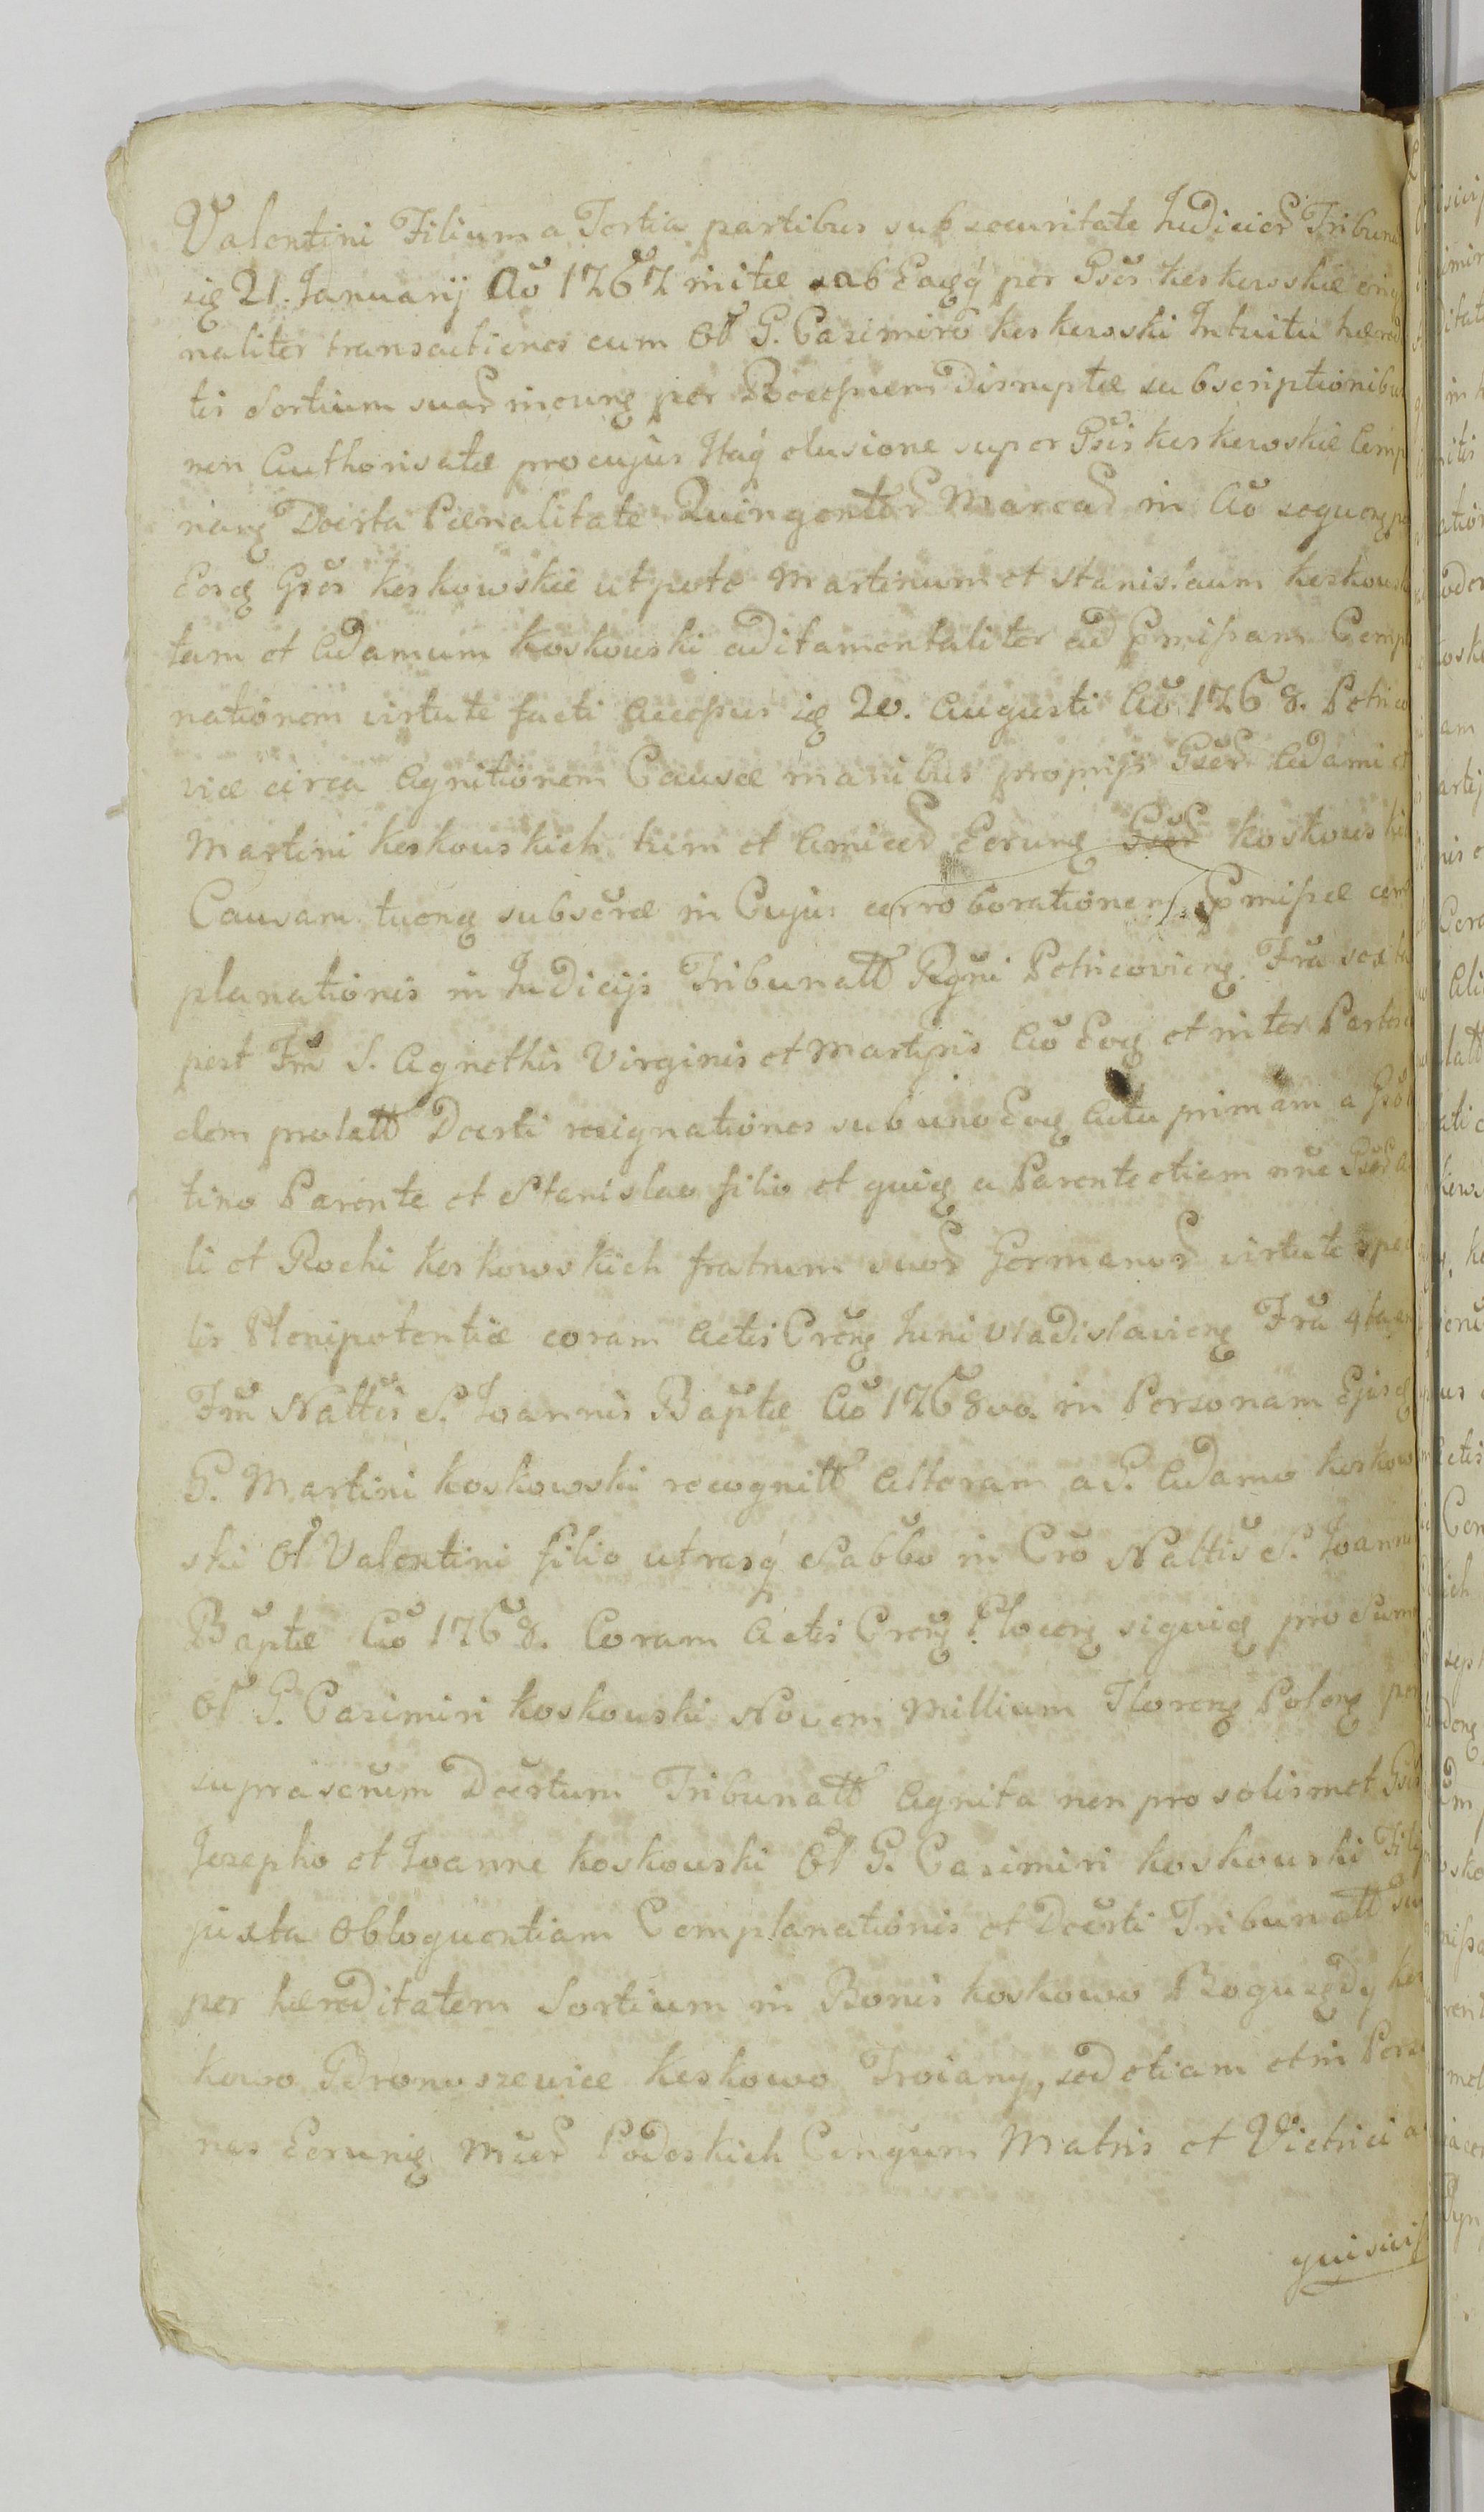 Valentini Filium a Tertia partibus sub securitate Judicior Tribuna
sig 21. Januarij Aõ 1767 initæ sub Eaqq per Gsõs Koskowskie erig
naliter transactiones cum Ol G. Casimirõ Koskowski Intuitu hæred
tis Sortium suar ineung per Recessum Disruptæ subscriptionibus
non Authorisatæ pro cujus Itaq elusione super Gsõs Koskowskie Comp
riang Dcerta Pænalitate Quingentor Marcar in Aõ sequeng
Eosq Gsõs Koskowskie utpote Martinum et Stanislaum Koskowsk
tam et Adamum Koskowski aditamentaliter ad Præmissam Comp
nationem virtute facti Accessus ig 20. Augusti Aõ 1768. Petrico
viæ circa Agnitionem Causæ manibus proprijs Gsor Adami et
Martini Koskowskich tum et Amicor Eorung Gsor Koskowski
Causam tueng subscræ in Cujus corroborationem Præmissæ com
planationis in Judicijs Tribunall Regni Petricovieng Fra sexta
post Fm S. Agnethis Virginis et Martyris Aõ Eoq et inter Partes
dem prolatt Dcerti resignationes sub uno Eoq Actu primam a Gsõ
tino Parente et Stanislao filio et quiq a Parente etiam nũc Gsor
li et Rochi Koskowskich fratrum suor Germanor virtute spec
lis Plenipotentiæ coram Actis Creng Juni Vladislavieng Fra 4ta
Fm Nattis S. Joannis Baptæ Aõ 1768va in Personam Ejusq
G. Martini Koskowski recognitt Alteram a G. Adamo Koskow
ski Ol Valentini filio utrasq Sabbo in Crõ Nattis S. Joannis
Baptæ Aõ 1768. Coram Actis Creng Ploceng siquiq pro Sum
Ol G. Casimiri Koskowski Novem Millium Floreng Polong per
suprascrum Dcertum Tribunatt Agnita non pro solismet Gsis
Josepho et Joanne Koskowski Ol G. Casimiri Koskowski Filijs
juxta Obloquentiam Complanationis et Dcerti Tribunatt su
per hæreditatem Sortium in Bonis Koskowo Boguzędy Kos
kowo Bronoszewice Koskowo Troiany, sed etiam et in Perso
nas Eorung Mtor Podoskich Conjgum Matris et Vietrici a
quisivis